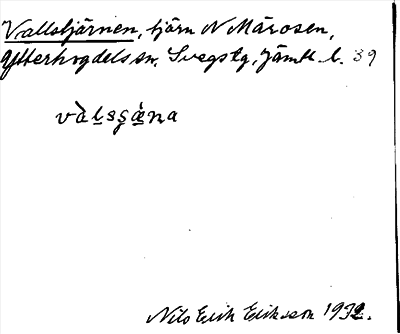 Vallstjärnen, tjärn N Mårosen,
Ytterhogdels sn, Svegs tg, Jämtl. l. 39
vàlsgæ̀na
Nils Erik Eriksson 1932.